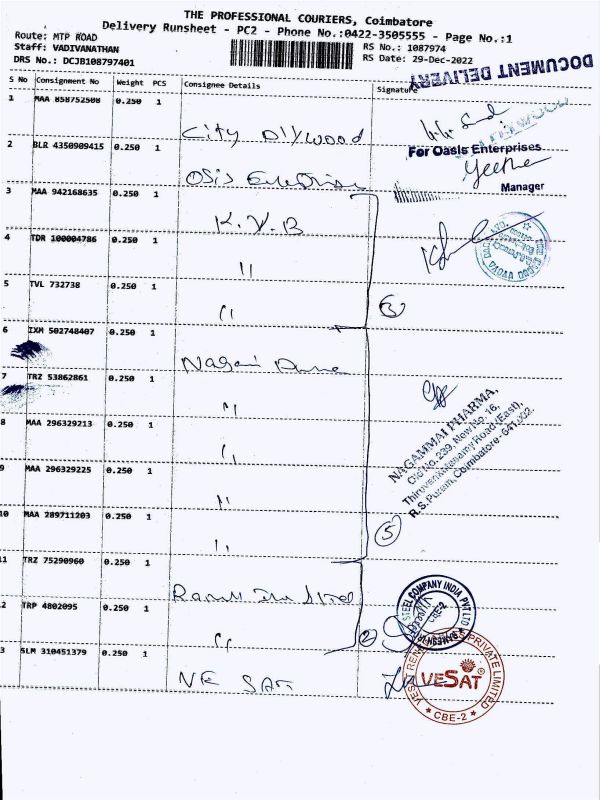 THE PROFESSIONAL COURIERS, Coimbatore
Delivery Runsheet - PC2 - Phone No.:0422-3505555 - Page No.:1
Route: MTP ROAD
Staff: VADIVANATHAN
DRS No.: DCJB108797401
RS No.: 1087974
RS Date: 29-Dec-2022
DOCUMENT DELIVERY
S No Consignment No Weight PCS Consignee Details Signature
1 MAA 858752508 0.250 1 City Plywood
2 BLR 4350909415 0.250 1 Osis
For Oasis Enterprises
Manager
3 MAA 942168635 0.250 1 K.V.B
4 TDR 100004786 0.250 1 "
5 TVL 732738 0.250 1 " 3
6 IXM 502748407 0.250 1
7 TRZ 53862861 0.250 1 "
8 MAA 296329213 0.250 1 "
9 MAA 296329225 0.250 1 "
10 MAA 289711203 0.250 1 " 5
NAGAMMAI PHARMA,
Old No. 239, New No. 16,
Thiruvenkatasamy Road (East),
R.S.Puram, Coimbatore - 641 002.
11 TRZ 75290960 0.250 1 Steel
12 TRP 4802095 0.250 1 " 2
STEEL COMPANY INDIA PVT LTD
CBE-2
13 SLM 310451379 0.250 1 VE SAT
PRIVATE LIMITED
VESAT
CBE-2